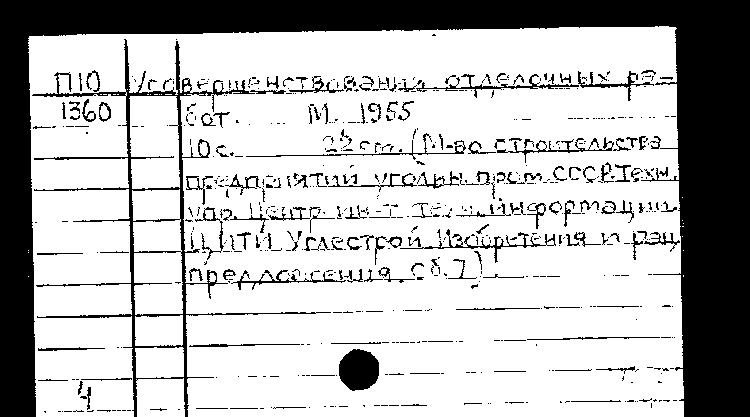 П10 Усовершенствования отделочных ра-
1360 бот. М. 1955
10 с. 22 cm. (М-во строительства
предприятий угольн. пром. СССР. Техн.
упр. Центр. ин-т техн. информации
ЦИТИ Углестрой. Изобретения и рац.
предложения. Сб. 7).
4